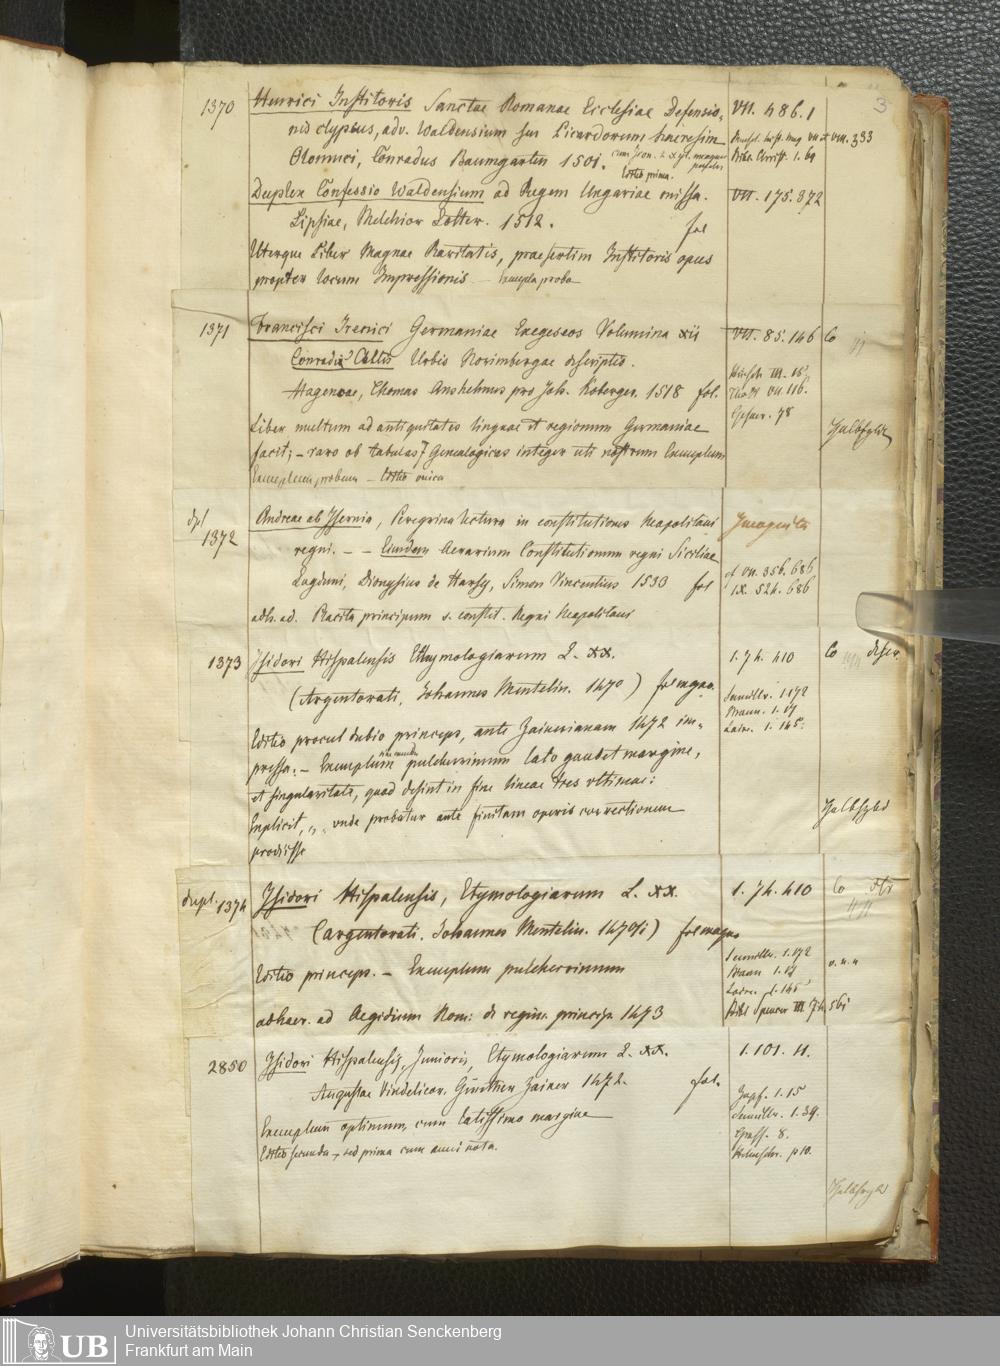 3
1370 Henrici Institoris Sanctae Romanae Ecclesiae Defensio- VII. 486. 1
nis clypeus, adv. Waldensium seu Picardorum haeresim VIII. 333
Olomuci, Conradus Baumgarten 1501. Bibl. Christ. 1. 69
Editio prima.
Duplex Confessio Waldensium ad Regem Ungariae missa. VII. 175. 372
Lipsiae, Melchior Lotter. 1512. fol
Uterque Liber Magnae Raritatis, praesertim Institoris opus
propter locum Impressionis - Exempla proba
1371 Francisci Irenici Germaniae Exegeseos Volumina xii VII. 85. 146 Co
Conradi Celtis Urbis Norimbergae descriptio.
Hagenoae, Thomas Anshelmus pro Joh. Koberger. 1518 fol. VII 116.
Gesner. 78
Liber multum ad antiquitates linguae et regionum Germaniae Halbfzbd
facit; - raro ob tabulas Genealogicas integer uti nostrum Exemplum
Exemplum probum - Editio unica
dpl
1372 Andreae ab Isernia, Peregrina lectura in constitutiones Neapolitani
regni. - - Eiusdem Aerarium Constitutionum regni Siciliae
Lugduni, Dionysius de Harsy, Simon Vincentius 1530 fol cf VII. 356. 686
IX. 524. 686
adh. ad. Placita principum s. constit. Regni Neapolitani
1373 Isidori Hispalensis Ethymologiarum L. xx. 1. 74. 410 Co
(Argentorati, Johannes Mentelin. 1470) fol magno. Semiller. 1. 172
Braun. 1. 17
Laire. 1. 145.
Editio procul dubio princeps, ante Zainerianam 1472 im-
pressa. - Exemplum pulcherrimum lato gaudet margine,
et singularitate, quod desint in fine lineae tres ultimae:
Explicit, unde probatur ante finitam operis correctionem Halbfzbd
prodiisse
dupl. 1374 Isidori Hispalensis, Etymologiarum L. xx. 1. 74. 410 Co
(Argentorati. Johannes Mentelin. 1470) fol magno
Semiller. 1. 172
Editio princeps. - Exemplum pulcherrimum Braun 1. 17
Laire. 1. 145
adhaer. ad Aegidium Rom: de regim. principp. 1473 Bibl Spencer III 74 561
2850 Isidori Hispalensis, Junioris, Etymologiarum L. xx. 1. 101. 11.
Augustae Vindelicor. Günther Zainer 1472. fol.
Zapf. 1. 15
Exemplum optimum, cum latissimo margine Semiller. 1. 39.
Editio secunda, sed prima cum anni nota. 8.
p 10.
Halbfrzbd
UB Universitätsbibliothek Johann Christian Senckenberg
Frankfurt am Main